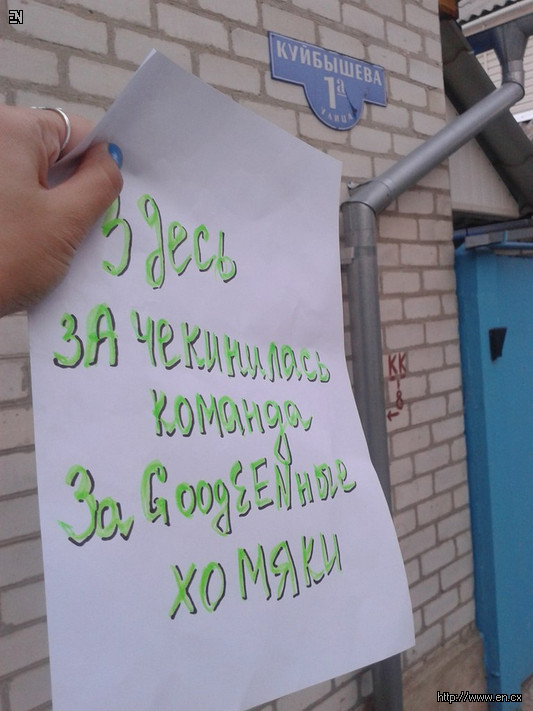 EN
КУЙБЫШЕВА
1а
УЛИЦА
Здесь
ЗАчекинилась
команда
ЗаGoogEENные
хомяки
КК
8
http://www.en.cx